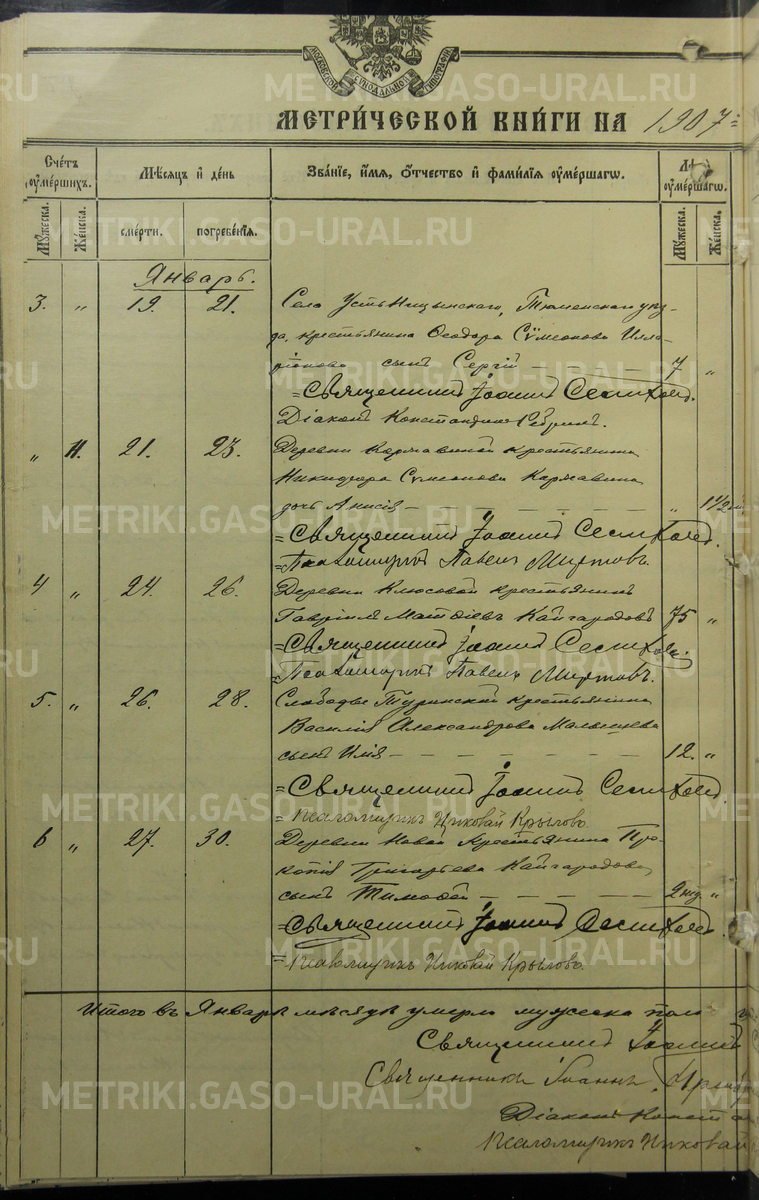 МОСКОВСКОЙ СѴНОДАЛЬНОЙ ТИПОГРАФІИ
МЕТРИ́ЧЕСКОЙ КНИ́ГИ НА 1907
Сче́тъ ᲂу҆ме́ршихъ.
Мѣ́сяцъ и де́нь
Зва́ніе, и҆́мя, ѻ҆́тчество и҆ фами́лія ᲂу҆ме́ршагѡ.
Лѣ ᲂу҆ме́ршагѡ.
Му́жеска.
Же́нска.
сме́рти.
погребе́нія.
Му́жеска.
Же́нска.
Январь.
3. " 19. 21. Села Усть-Ницынскаго, Тюменскаго уѣз-
да, крестьянина Ѳеодора Сѵмеонова Илла-
ріонова сынъ Сергій 7 "
Священникъ Іоаннъ
Діаконъ Константинъ
" 11. 21. 23. Деревни Кармавиной крестьянина
Никифора Сѵмеонова Кармавина
дочь Анисія " 1½
Священникъ Іоаннъ
Псаломщикъ Павелъ Миртовъ.
4 " 24. 26. Деревни Ключовой крестьянинъ
Гавріилъ Матѳіевъ Кайгородовъ 75 "
Священникъ Іоаннъ
Псаломщикъ Павелъ Миртовъ.
5. " 26. 28. Слободы Туринской крестьянина
Василія Александрова Малышева
сынъ Илія 12. "
Священникъ Іоаннъ
Псаломщикъ Николай Крылово
6 " 27. 30. Деревни Новой крестьянина Про-
копія Григорьева Кайгородова
сынъ Тимоѳей 2 нед "
Священникъ Іоаннъ
Псаломщикъ Николай Крылово
Итого въ Январѣ мѣсяцѣ умерло мужеска пола
Священникъ Іоаннъ
Священникъ Іоаннъ
Діаконъ Конста
Псаломщикъ Николай
METRIKI.GASO-URAL.RU